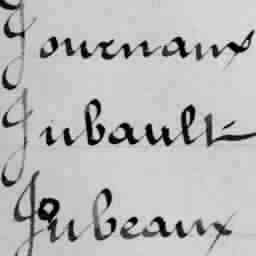 Journaux
Jubault
Jubeaux